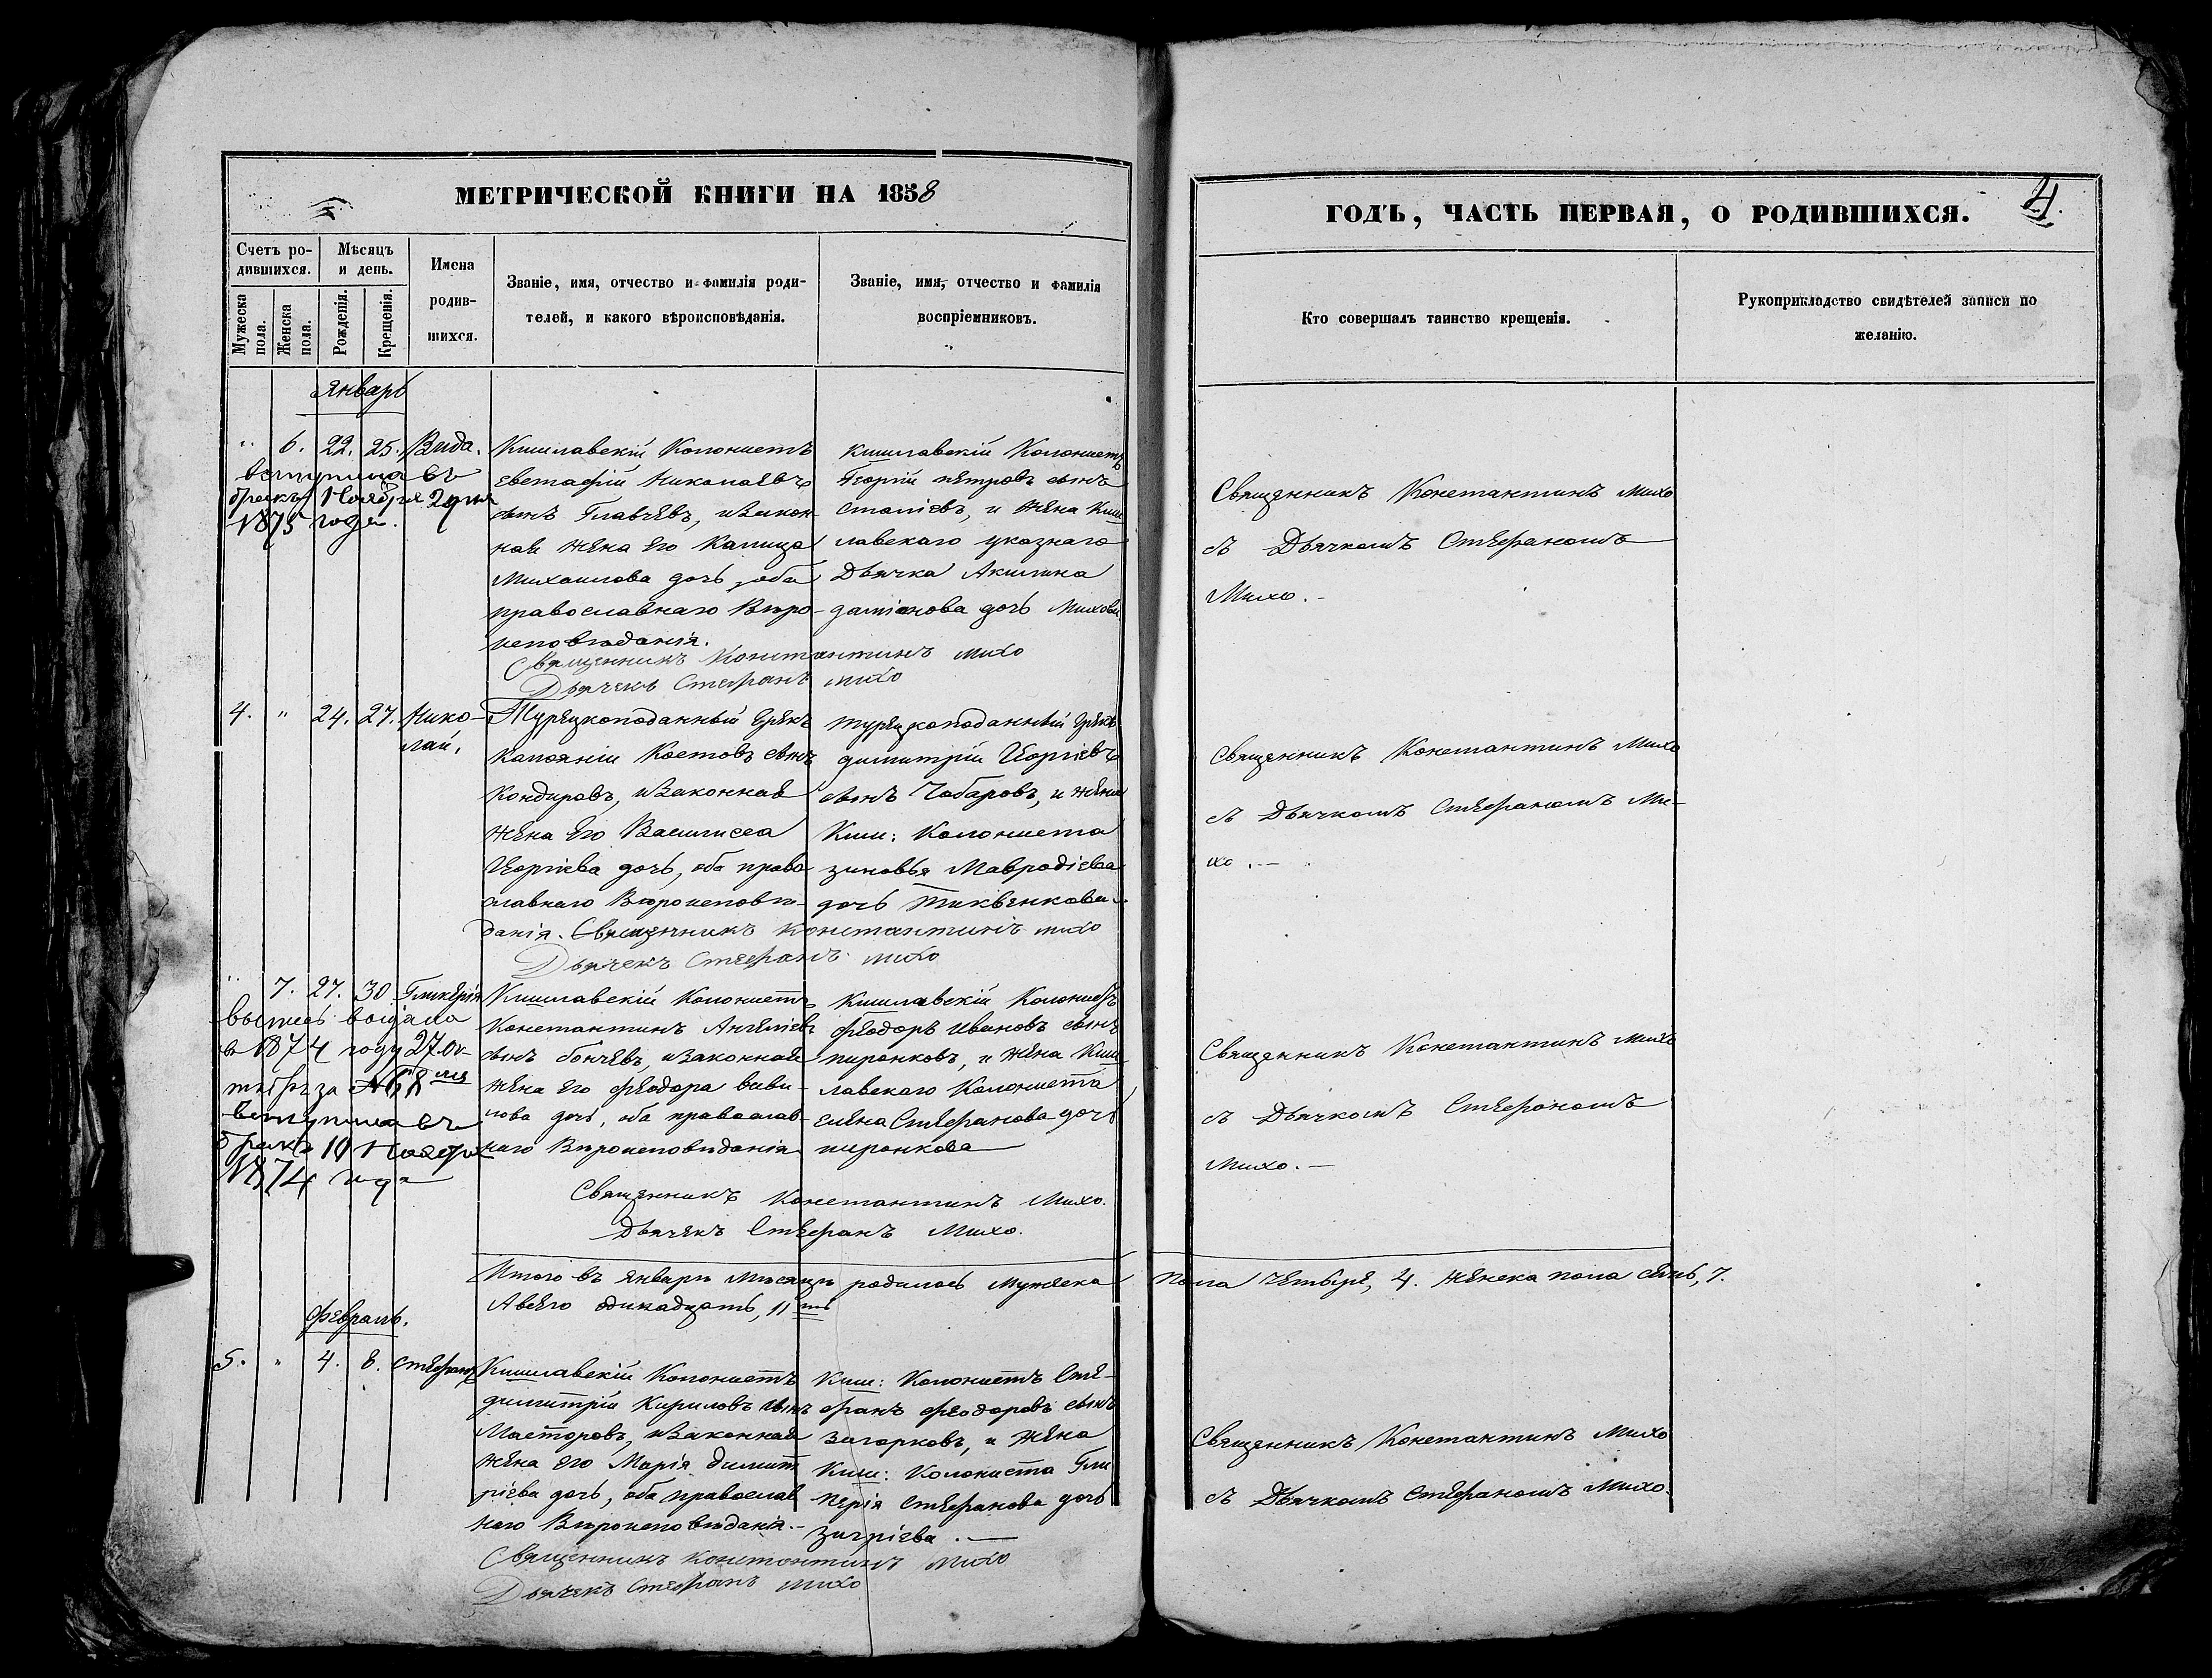 МЕТРИЧЕСКОЙ КНИГИ НА 1858
Счетъ ро-
дившихся.
Мѣсяцъ
и день.
Мужеска пола.
Женска пола.
Рожденія.
Крещенія.
Имена
родив-
шихся.
Званіе, имя, отчество и фамилія роди-
телей, и какого вѣроисповѣданія.
Званіе, имя, отчество и фамилія
воспріемниковъ.
Январь
" 6. 22. 25. Вида.
вступила въ
бракъ Ноября 2 дня
1875 года.
Кишлавскій Колонистъ
Евстафій Николаевъ
сынъ Главчевъ, и закон-
ная жена его Калица
Михаилова дочь, оба
православнаго Вѣро-
исповѣданія.
Кишлавскій Колонистъ
Георгій Петровъ сынъ
, и жена Киш
лавскаго указнаго
Дьячка Акилина
даміанова дочь Михова
Священникъ Константинъ Михо
Дьячекъ Стефанъ Михо
4. " 24. 27. Нико-
лай.
Турецкоподанный Грекъ
Костовъ сынъ
Кондуровъ, и законная
жена его Василиса
Георгіева дочь, оба право-
славнаго Вѣроисповѣ-
данія.
турецкоподанный Грекъ
димитрій Георгіевъ
сынъ Чобаровъ, и жена
Киш: Колониста
зиновья Мавродіева
дочь
Священникъ Константинъ Михо
Дьячекъ Стефанъ Михо
" 7. 27. 30 Гликерія
выпись выдана
в 1874 году 27 Ок-
тября за № 68
вступила въ
бракъ 10 Ноября
1874 года
Кишлавскій Колонистъ
Константинъ Ангеліевъ
сынъ бончевъ, и законная
жена его феодора виви-
лова дочь, оба православ-
наго Вѣроисповѣданія
Кишлавскій Колонистъ
феодоръ Ивановъ сынъ
пиронковъ, и жена Киш
лавскаго Колониста
елена Стефанова дочь
пиронкова
Священникъ Константинъ Михо.
Дьячекъ Стефанъ Михо.
Итого въ январѣ мѣсяцѣ родилось мужеска пола четыре, 4. женска пола семь, 7.
А всего одинадцать, 11
Февраль.
5. " 4. 8. Стефанъ
Кишлавскій Колонистъ
димитрій Кириловъ сынъ
Масторовъ, и законная
жена его Марія димит
ріева дочь, оба православ
наго Вѣроисповѣданія.-
Киш: Колонистъ Сте-
фанъ феодоровъ сынъ
Загорковъ, и жена
Киш: Колониста Гли
керія Стефанова дочь
Священникъ Константинъ Михо
Дьячекъ Стефанъ Михо
ГОДЪ, ЧАСТЬ ПЕРВАЯ, О РОДИВШИХСЯ.
4.
Кто совершалъ таинство крещенія.
Рукоприкладство свидѣтелей записи по
желанію.
Священникъ Константинъ Михо
съ Дьячкомъ Стефаномъ
Михо.-
Священникъ Константинъ Михо
съ Дьячкомъ Стефаномъ Ми-
хо.-
Священникъ Константинъ Михо
съ Дьячкомъ Стефаномъ
Михо.-
Священникъ Константинъ Михо
съ Дьячкомъ Стефаномъ Михо.